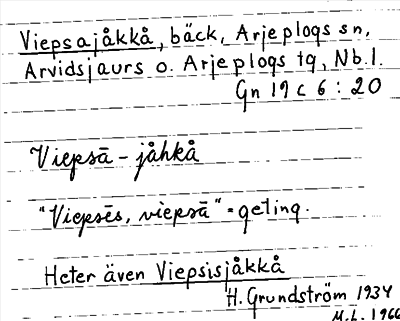 Viepsajåkkå, bäck, Arjeplogs sn,
Arvidsjaurs o. Arjeplogs tg, Nb. l.
Gn 19 c 6 : 20
Viepsā - jåhkå
"Viepsēs, viepsā" = geting.
Heter även Viepsisjåkkå
H. Grundström 1934
M.L. 1966